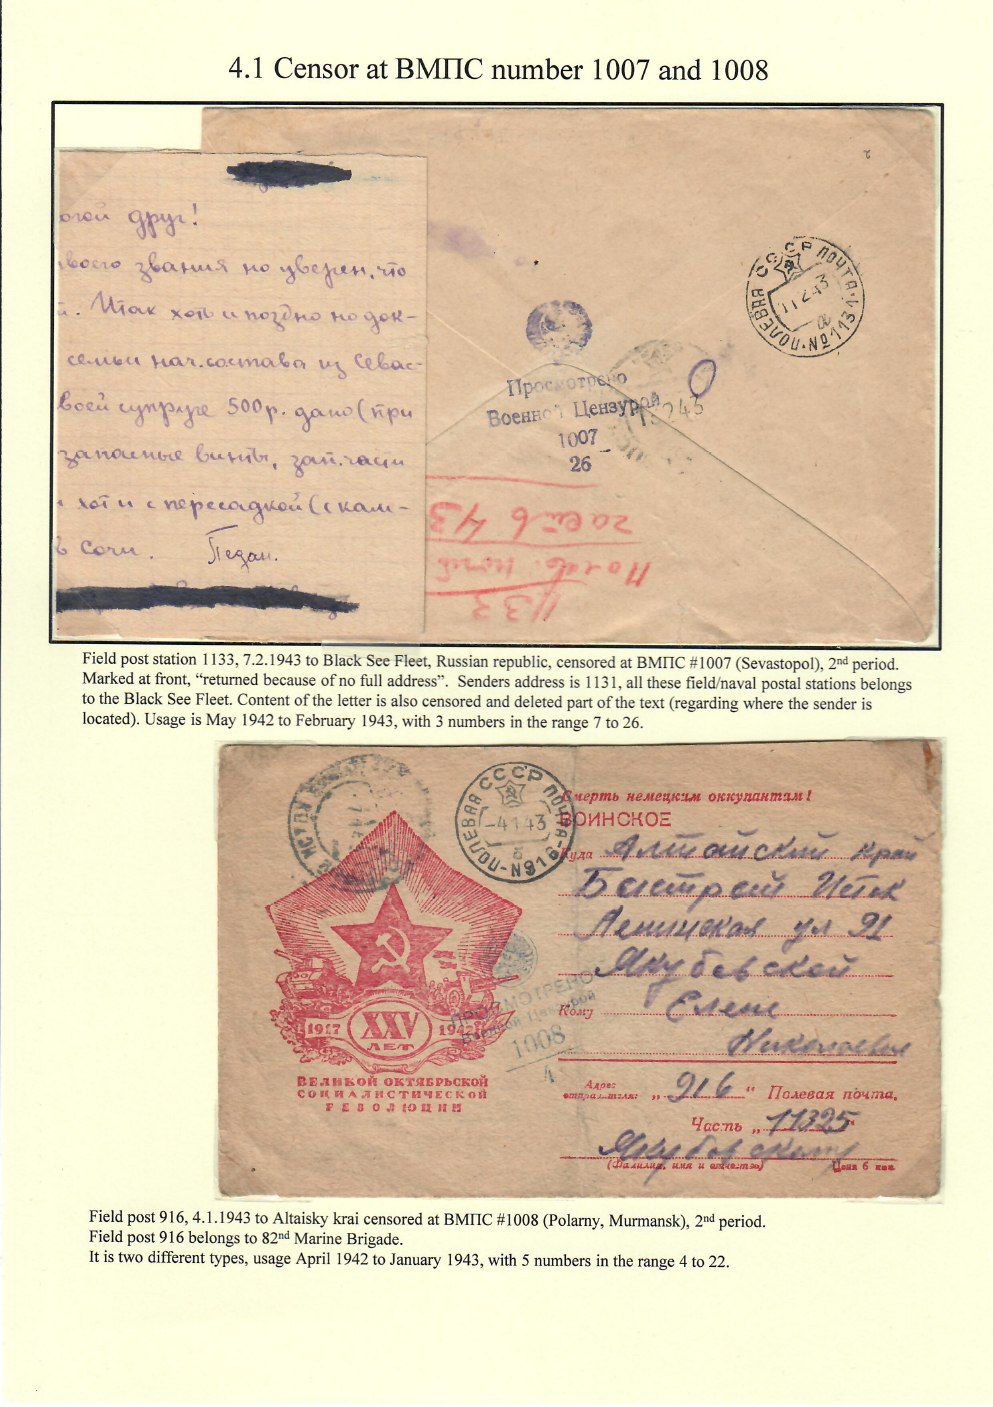 4.1 Censor at ВМПС number 1007 and 1008
огой друг!
воего звания но уверен, что
й. Итак хоть и поздно но док-
семьи нач.состава из Севас-
воей супруге 500р. дано (при
запасные винты, зап.части
хоть и с пересадкой (с кам-
ь Сочи. Педан.
ПОЛЕВАЯ СССР ПОЧТА
11 2 43
№1131
Просмотрено
Военной Цензурой
1007
26
13 2 43
1133
Полев. почт
часть 43
Field post station 1133, 7.2.1943 to Black See Fleet, Russian republic, censored at ВМПС #1007 (Sevastopol), 2nd period.
Marked at front, “returned because of no full address”. Senders address is 1131, all these field/naval postal stations belongs
to the Black See Fleet. Content of the letter is also censored and deleted part of the text (regarding where the sender is
located). Usage is May 1942 to February 1943, with 3 numbers in the range 7 to 26.
ПОЛЕВАЯ СССР ПОЧТА
-4 1 43
N916
Смерть немецким оккупантам!
ВОИНСКОЕ
Куда Алтайский край
Быстрый Исток
Ленинская ул 91
Якубовской
Кому Елене
Николаевне
1917 XXV 1942
ЛЕТ
ВЕЛИКОЙ ОКТЯБРЬСКОЙ
СОЦИАЛИСТИЧЕСКОЙ
РЕВОЛЮЦИИ
ПРОСМОТРЕНО
Военной Цензурой
1008
4
Адрес
отправителя: „916“ Полевая почта,
Часть „11325“
(Фамилия, имя и отчество) Цена 6 коп.
Field post 916, 4.1.1943 to Altaisky krai censored at ВМПС #1008 (Polarny, Murmansk), 2nd period.
Field post 916 belongs to 82nd Marine Brigade.
It is two different types, usage April 1942 to January 1943, with 5 numbers in the range 4 to 22.